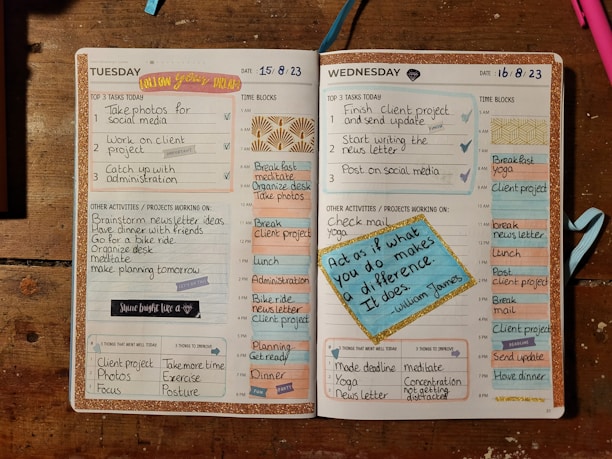 TUESDAY
DATE: 15/8/23
TOP 3 TASKS TODAY
1 Take photos for
social media
2 Work on client
project
3 Catch up with
administration
OTHER ACTIVITIES / PROJECTS WORKING ON:
Brainstorm newsletter ideas
Have dinner with friends
Go for a bike ride
Organize desk
meditate
make planning tomorrow
Shine bright like a
3 THINGS THAT WENT WELL TODAY
3 THINGS TO IMPROVE
Client project
Take more time
Photos
Exercise
Focus
Posture
TIME BLOCKS
Breakfast
meditate
Organize desk
Take photos
Break
client project
Lunch
Administration
Bike ride
newsletter
Client project
Planning
Get ready
Dinner
FUN
PARTY
WEDNESDAY
DATE: 16/8/23
TOP 3 TASKS TODAY
1 Finish client project
and send update
2 Start writing the
news letter
3 Post on social media
OTHER ACTIVITIES / PROJECTS WORKING ON:
Check mail
yoga
Act as if what
you do makes
a difference.
It does.
William James
3 THINGS THAT WENT WELL TODAY
3 THINGS TO IMPROVE
made deadline
meditate
Yoga
Concentration
News letter
not getting
distracted
TIME BLOCKS
Breakfast
yoga
Client project
break
news letter
Lunch
Post
client project
Break
mail
Client project
DEADLINE
Send update
Have dinner